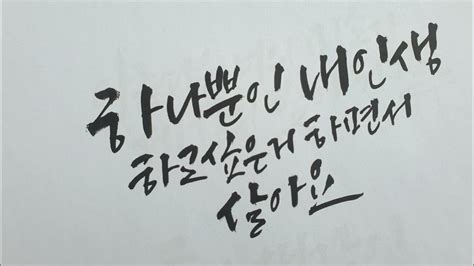 하나뿐인 내인생
하고싶은거 하면서
살아요